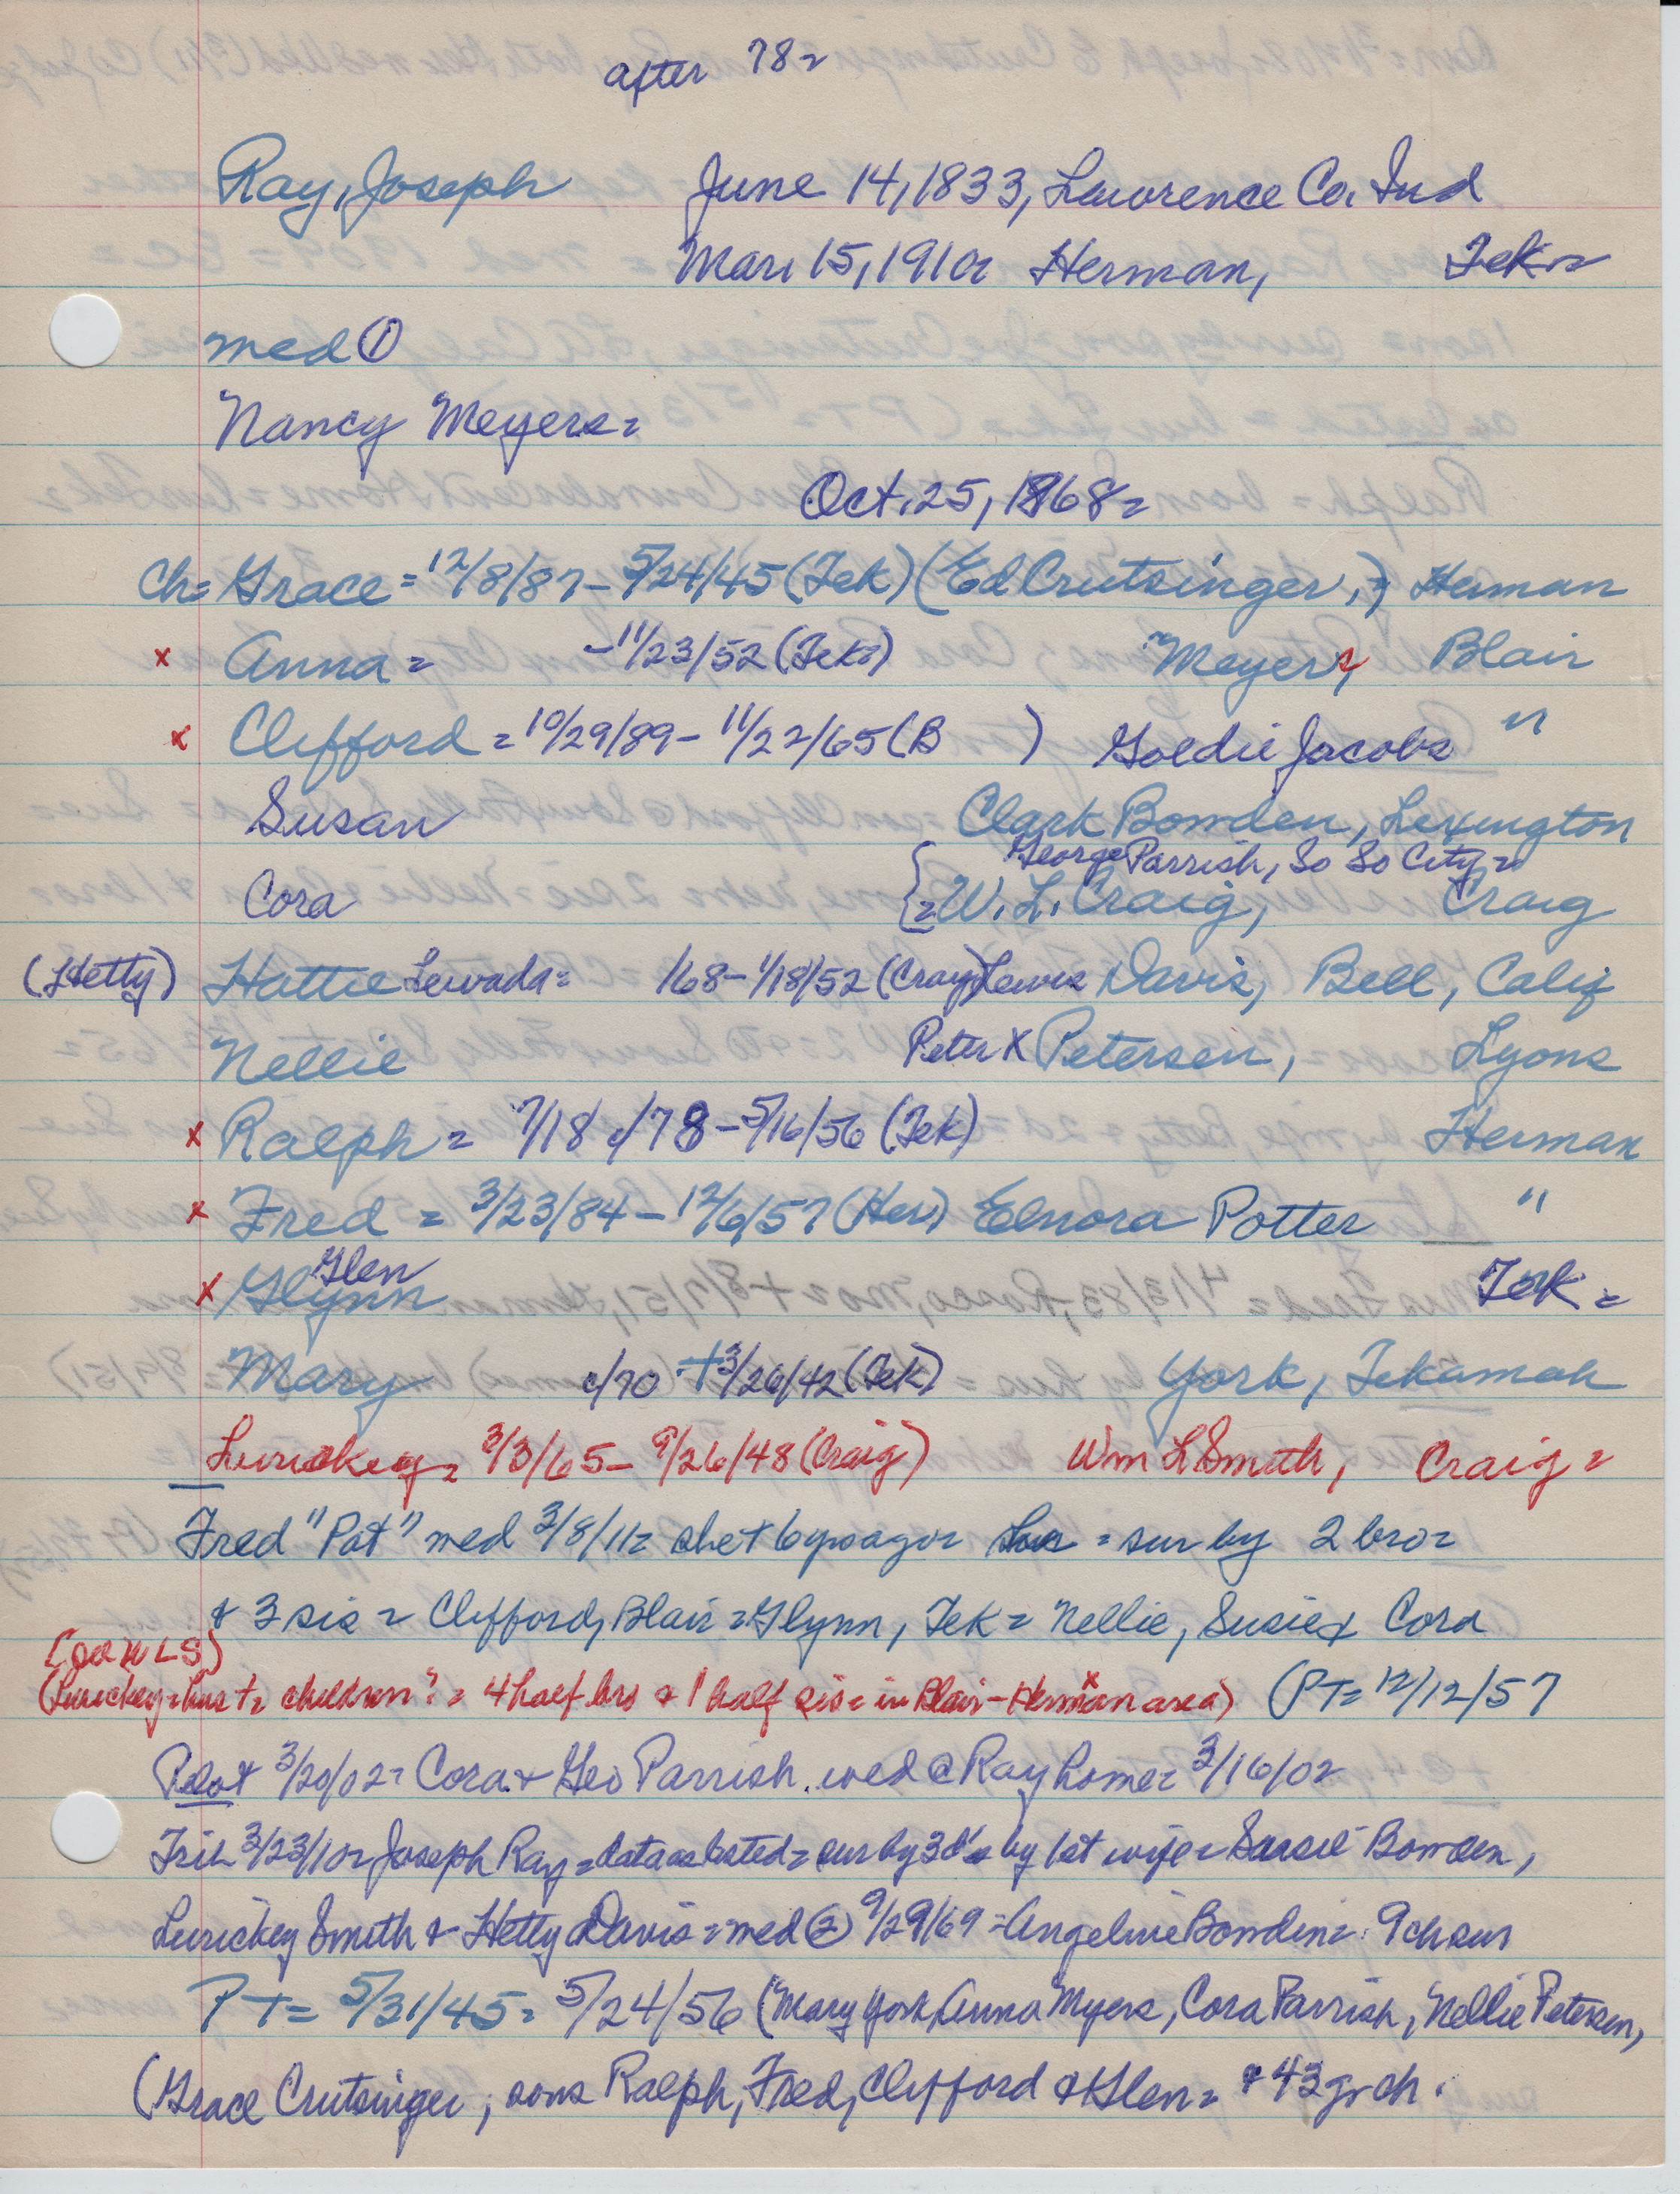 after 78=
Ray, Joseph June 14, 1833, Lawrence Co. Ind
Mar. 15, 1910= Herman, Tek=
med ①
Nancy Meyers=
Oct. 25, 1868=
Ch= Grace = 12/8/87 - 5/24/45 (Tek) (Ed Crutsinger, Herman
x Anna = - 11/23/52 (Tek=) Meyers, Blair
x Clifford = 10/29/89 - 11/22/65 (B ) Goldie Jacobs "
Susan Clark Bowden, Lexington
George Parrish, So So City=
Cora { = W. L. Craig, Craig
(Hetty) Hattie Lewada= /68 - 1/18/52 (Cray) Lewis Davis, Bell, Calif
Nellie Peter X Petersen, Lyons
x Ralph = 7/18 c/78 - 5/16/56 (Tek) Herman
x Fred = 3/23/84 - 12/6/57 (Her) Elnora Potter "
Glen
x Glynn Tek =
Mary c/70 + 3/26/42 (Tek) York, Tekamah
Lurickey = 3/3/65 - 9/26/48 (Craig) Wm L Smith, Craig =
Fred "Pat" med 3/8/11= she + 6 yrs ago= = sur by 2 bro=
& 3 sis = Clifford, Blair = Glynn, Tek = Nellie, Susie & Cora
W L S)
(Lurickey = hus += children? = 4 half bro & 1 half sis = in Blair - Herman area) x (PT= 12/12/57
3/20/02= Cora & Geo Parrish wed @ Ray home= 3/16/02
3/23/10= Joseph Ray = data as listed = sur by 3 d's by 1st wife = Susie Bowden,
Lurickey Smith & Hetty Davis = med ② 9/29/69 = Angeline Bowden= 9 ch sur
PT= 5/31/45= 5/24/56 (Mary York, Anna Myers, Cora Parrish, Nellie Petersen,
(Grace Crutsinger; sons Ralph, Fred, Clifford & Glen= & 43 gr ch.